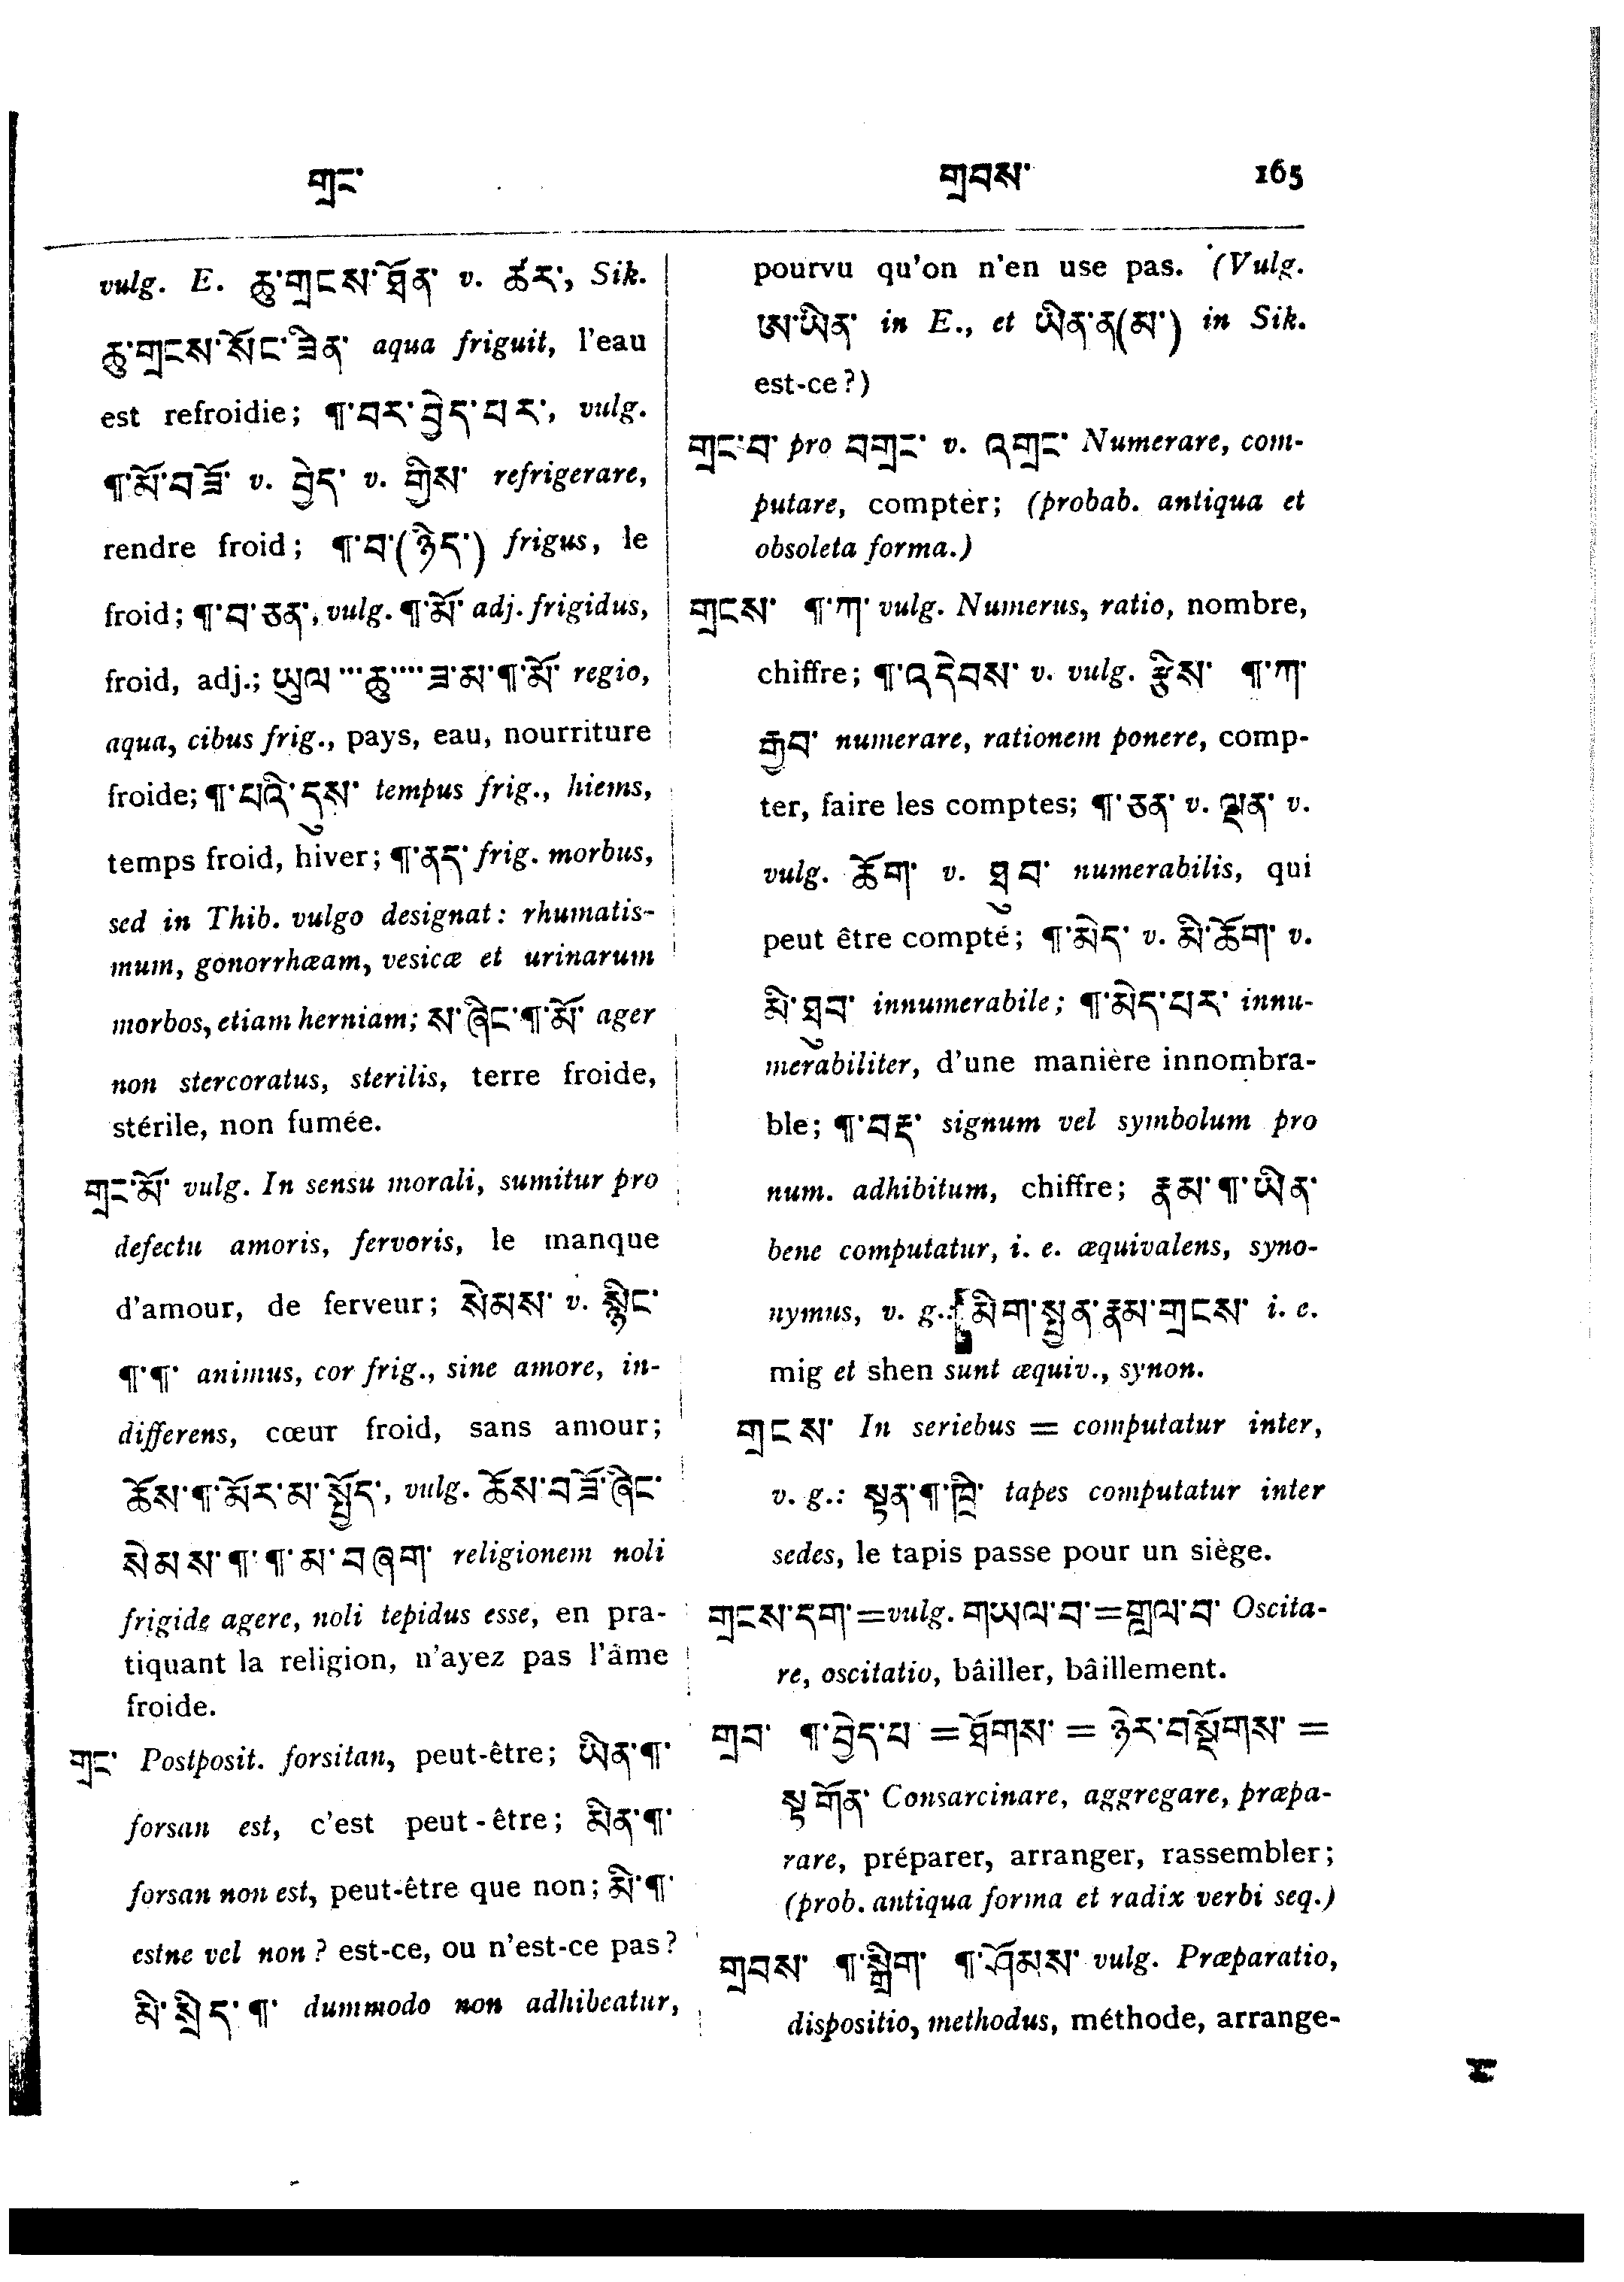 གྲང་
གྲབས་ 165
vulg. E. ཆུ་གྲངས་ཐོན་ v. ཚར་, Sik.
ཆུ་གྲངས་སོང་ཟིན་ aqua friguit, l'eau
est refroidie; ¶་བར་བྱེད་པར་, vulg.
¶་མོ་བཟོ་ v. བྱེད་ v. གྱིས་ refrigerare,
rendre froid; ¶་བ་(ཉེད་) frigus, le
froid; ¶་བ་ཅན་, vulg. ¶་མོ་ adj. frigidus,
froid, adj.; ཡུལ་…ཆུ་….ཟ་མ་¶་མོ་ regio,
aqua, cibus frig., pays, eau, nourriture
froide; ¶་པའི་དུས་ tempus frig., hiems,
temps froid, hiver; ¶་ནད་ frig. morbus,
sed in Thib. vulgo designat: rhumatis-
mum, gonorrhæam, vesicæ et urinarum
morbos, etiam herniam; ས་ཞིང་¶་མོ་ ager
non stercoratus, sterilis, terre froide,
stérile, non fumée.
གྲང་མོ་ vulg. In sensu morali, sumitur pro
defectu amoris, fervoris, le manque
d'amour, de ferveur; སེམས་ v. སྙིང་
¶་¶་ animus, cor frig., sine amore, in-
differens, cœur froid, sans amour;
ཆོས་¶་མོར་མ་སྤྱོད་, vulg. ཆོས་བཟོ་ཞིང་
སེམས་¶་¶་མ་བཞག་ religionem noli
frigide agere, noli tepidus esse, en pra-
tiquant la religion, n'ayez pas l'âme
froide.
གྲང་ Postposit. forsitan, peut-être; ཡིན་¶་
forsan est, c'est peut-être; མིན་¶་
forsan non est, peut-être que non; མི་¶་
estne vel non? est-ce, ou n'est-ce pas?
མི་སྲིད་¶་ dummodo non adhibeatur,
pourvu qu'on n'en use pas. (Vulg.
ཨ་ཡིན་ in E., et ཡིན་ན(མ་) in Sik.
est-ce?)
གྲང་བ་ pro བགྲང་ v. འགྲང་ Numerare, com-
putare, compter; (probab. antiqua et
obsoleta forma.)
གྲངས་ ¶་ཀ་ vulg. Numerus, ratio, nombre,
chiffre; ¶་འདེབས་ v. vulg. རྩིས་ ¶་ཀ་
རྒྱབ་ numerare, rationem ponere, comp-
ter, faire les comptes; ¶་ཅན་ v. ལྡན་ v.
vulg. ཆོག་ v. ཐུབ་ numerabilis, qui
peut être compté; ¶་མེད་ v. མི་ཆོག་ v.
མི་ཐུབ་ innumerabile; ¶་མེད་པར་ innu-
merabiliter, d'une manière innombra-
ble; ¶་བརྡ་ signum vel symbolum pro
num. adhibitum, chiffre; རྣམ་¶་ཡིན་
bene computatur, i. e. æquivalens, syno-
nymus, v. g.: མིག་སྤྱན་རྣམ་གྲངས་ i. e.
mig et shen sunt æquiv., synon.
གྲངས་ In seriebus = computatur inter,
v. g.: སྟན་¶་ཁྲི་ tapes computatur inter
sedes, le tapis passe pour un siège.
གྲངས་དག་=vulg. གཡལ་བ་=གླལ་བ་ Oscita-
re, oscitatio, bâiller, bâillement.
གྲབ་ ¶་བྱེད་པ =ཐོགས་ = ཉེར་བསྡོགས་ =
སྟ་གོན་ Consarcinare, aggregare, præpa-
rare, préparer, arranger, rassembler;
(prob. antiqua forma et radix verbi seq.)
གྲབས་ ¶་སྒྲིག་ ¶་ཤོམས་ vulg. Præparatio,
dispositio, methodus, méthode, arrange-